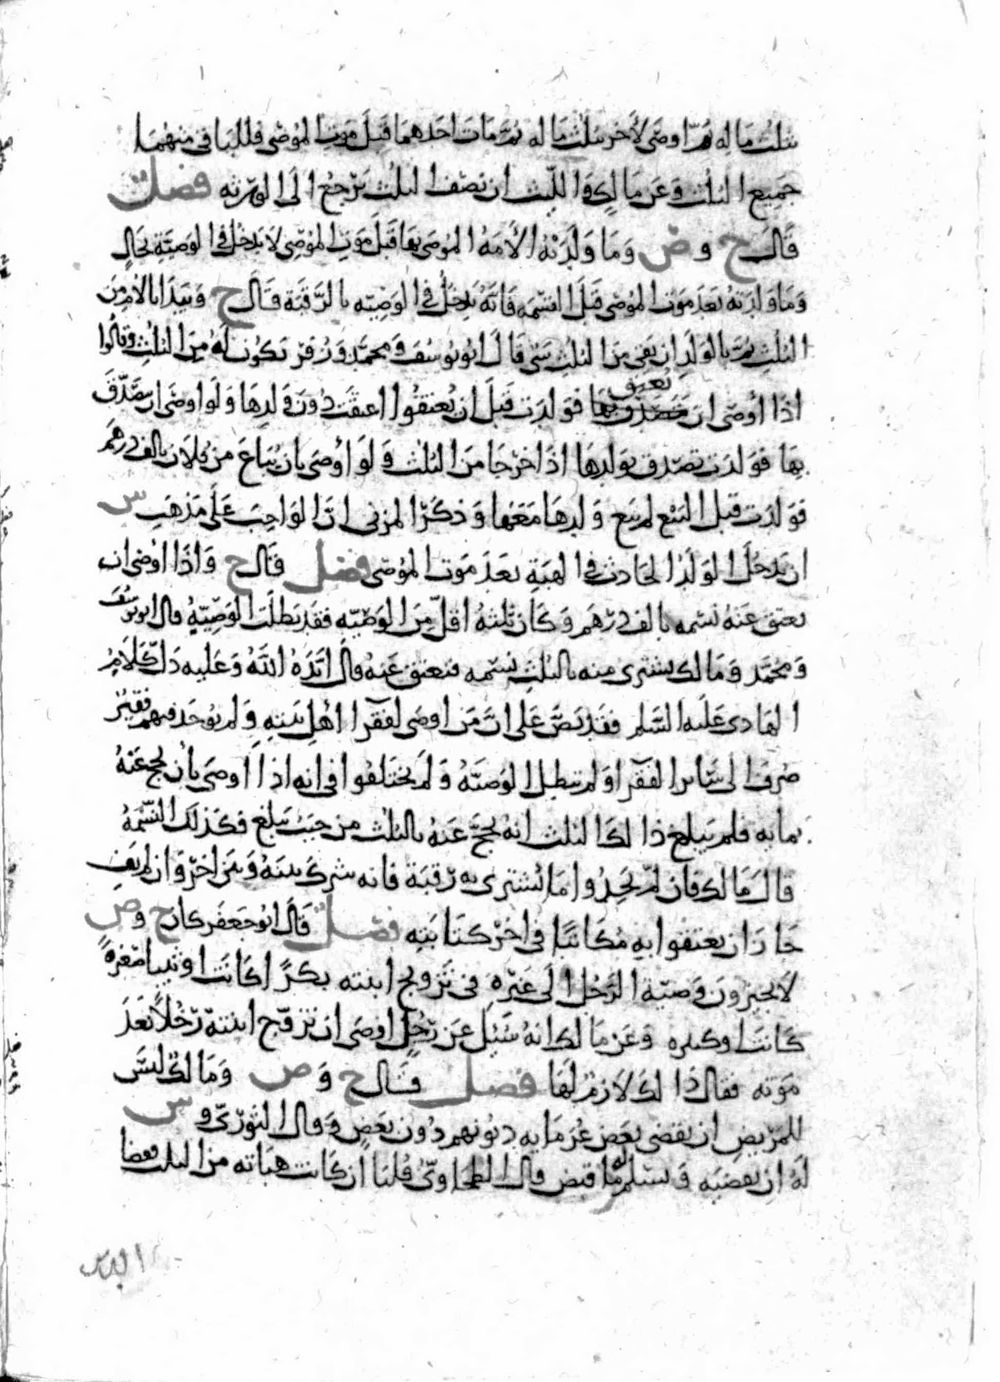 بثلث ماله ثم اوصى لاخر بثلث ماله ثم مات احدهما قبل موت الموصي فللباقي منهما
جميع الثلث وعن مالك والليث ان نصف الثلث يرجع الى الورثه فصل
قال ح و ص وما ولدته الامه الموصى بها قبل موت الموصي لا يدخل في الوصية بحال
وما ولدته بعد موت الموصي قبل القسمه فانه يدخل في الوصيه بالرقبة قال ح ويبدا بالام من
الثلث ثم بالولد ان بقي من الثلث شي قال ابو يوسف ومحمد وزفر يكون له من الثلث وقالوا
اذا أوصى ان يعتق بها فولدت قبل ان يعتقوا اعتقت دون ولدها ولو اوصى ان يتصدق
بها فولدت تصدق بولدها اذا خرجا من الثلث ولو أوصى بان يباع من فلان بالف درهم
فولدت قبل البيع لم يبع ولدها معها وذكر المزني ان الواجب على مذهب س
ان يدخل الولد الحادث في الهبة بعد موت الموصي فصل قال ح واذا اوصى ان
يعتق عنه نسمه بالف درهم وكان ثلثه اقل من الوصيه فقد بطلت الوصيّة قال ابو يوسف
ومحمد ومالك يشترى منه بالثلث نسمه فتعتق عنه قال ايده الله وعليه دل كلام
الهادي عليه السلم فقد نص على ان من اوصى لفقرا اهل بيته ولم يوجد فيهم فقير
صرف الى سائر الفقرا ولم تبطل الوصية ولم يختلفوا في انه اذا اوصى بان يحج عنه
بمايه فلم يبلغ ذلك الثلث انه يحج عنه بالثلث من حيث يبلغ فكذلك النسمه
قال مالك فان لم يجدوا ما يشترى به رقبة فانه شرك بينه وبين اخر وان لم يف
جاز ان يعتقوا به مكاتبا في اخر كتابته فصل قال ابو جعفر كان ح و ص
لا يجيزون وصية الرجل الى غيره في تزويج ابنته بكرا كانت او ثيبا صغيرة
كانت او كبيره وعن مالك انه سئل عن رجل اوصى ان تزوج ابنته رجلا بعد
موته فقال ذلك لازم لها فصل قال ح و ص ومالك ليس
للمريض ان يقضي بعض غرمايه ديونهم دون بعض وقال الثوري و س
له ان يقضيه ويسلم له ما قبض قال الطحاوي قلنا ان كانت هباته من الثلث